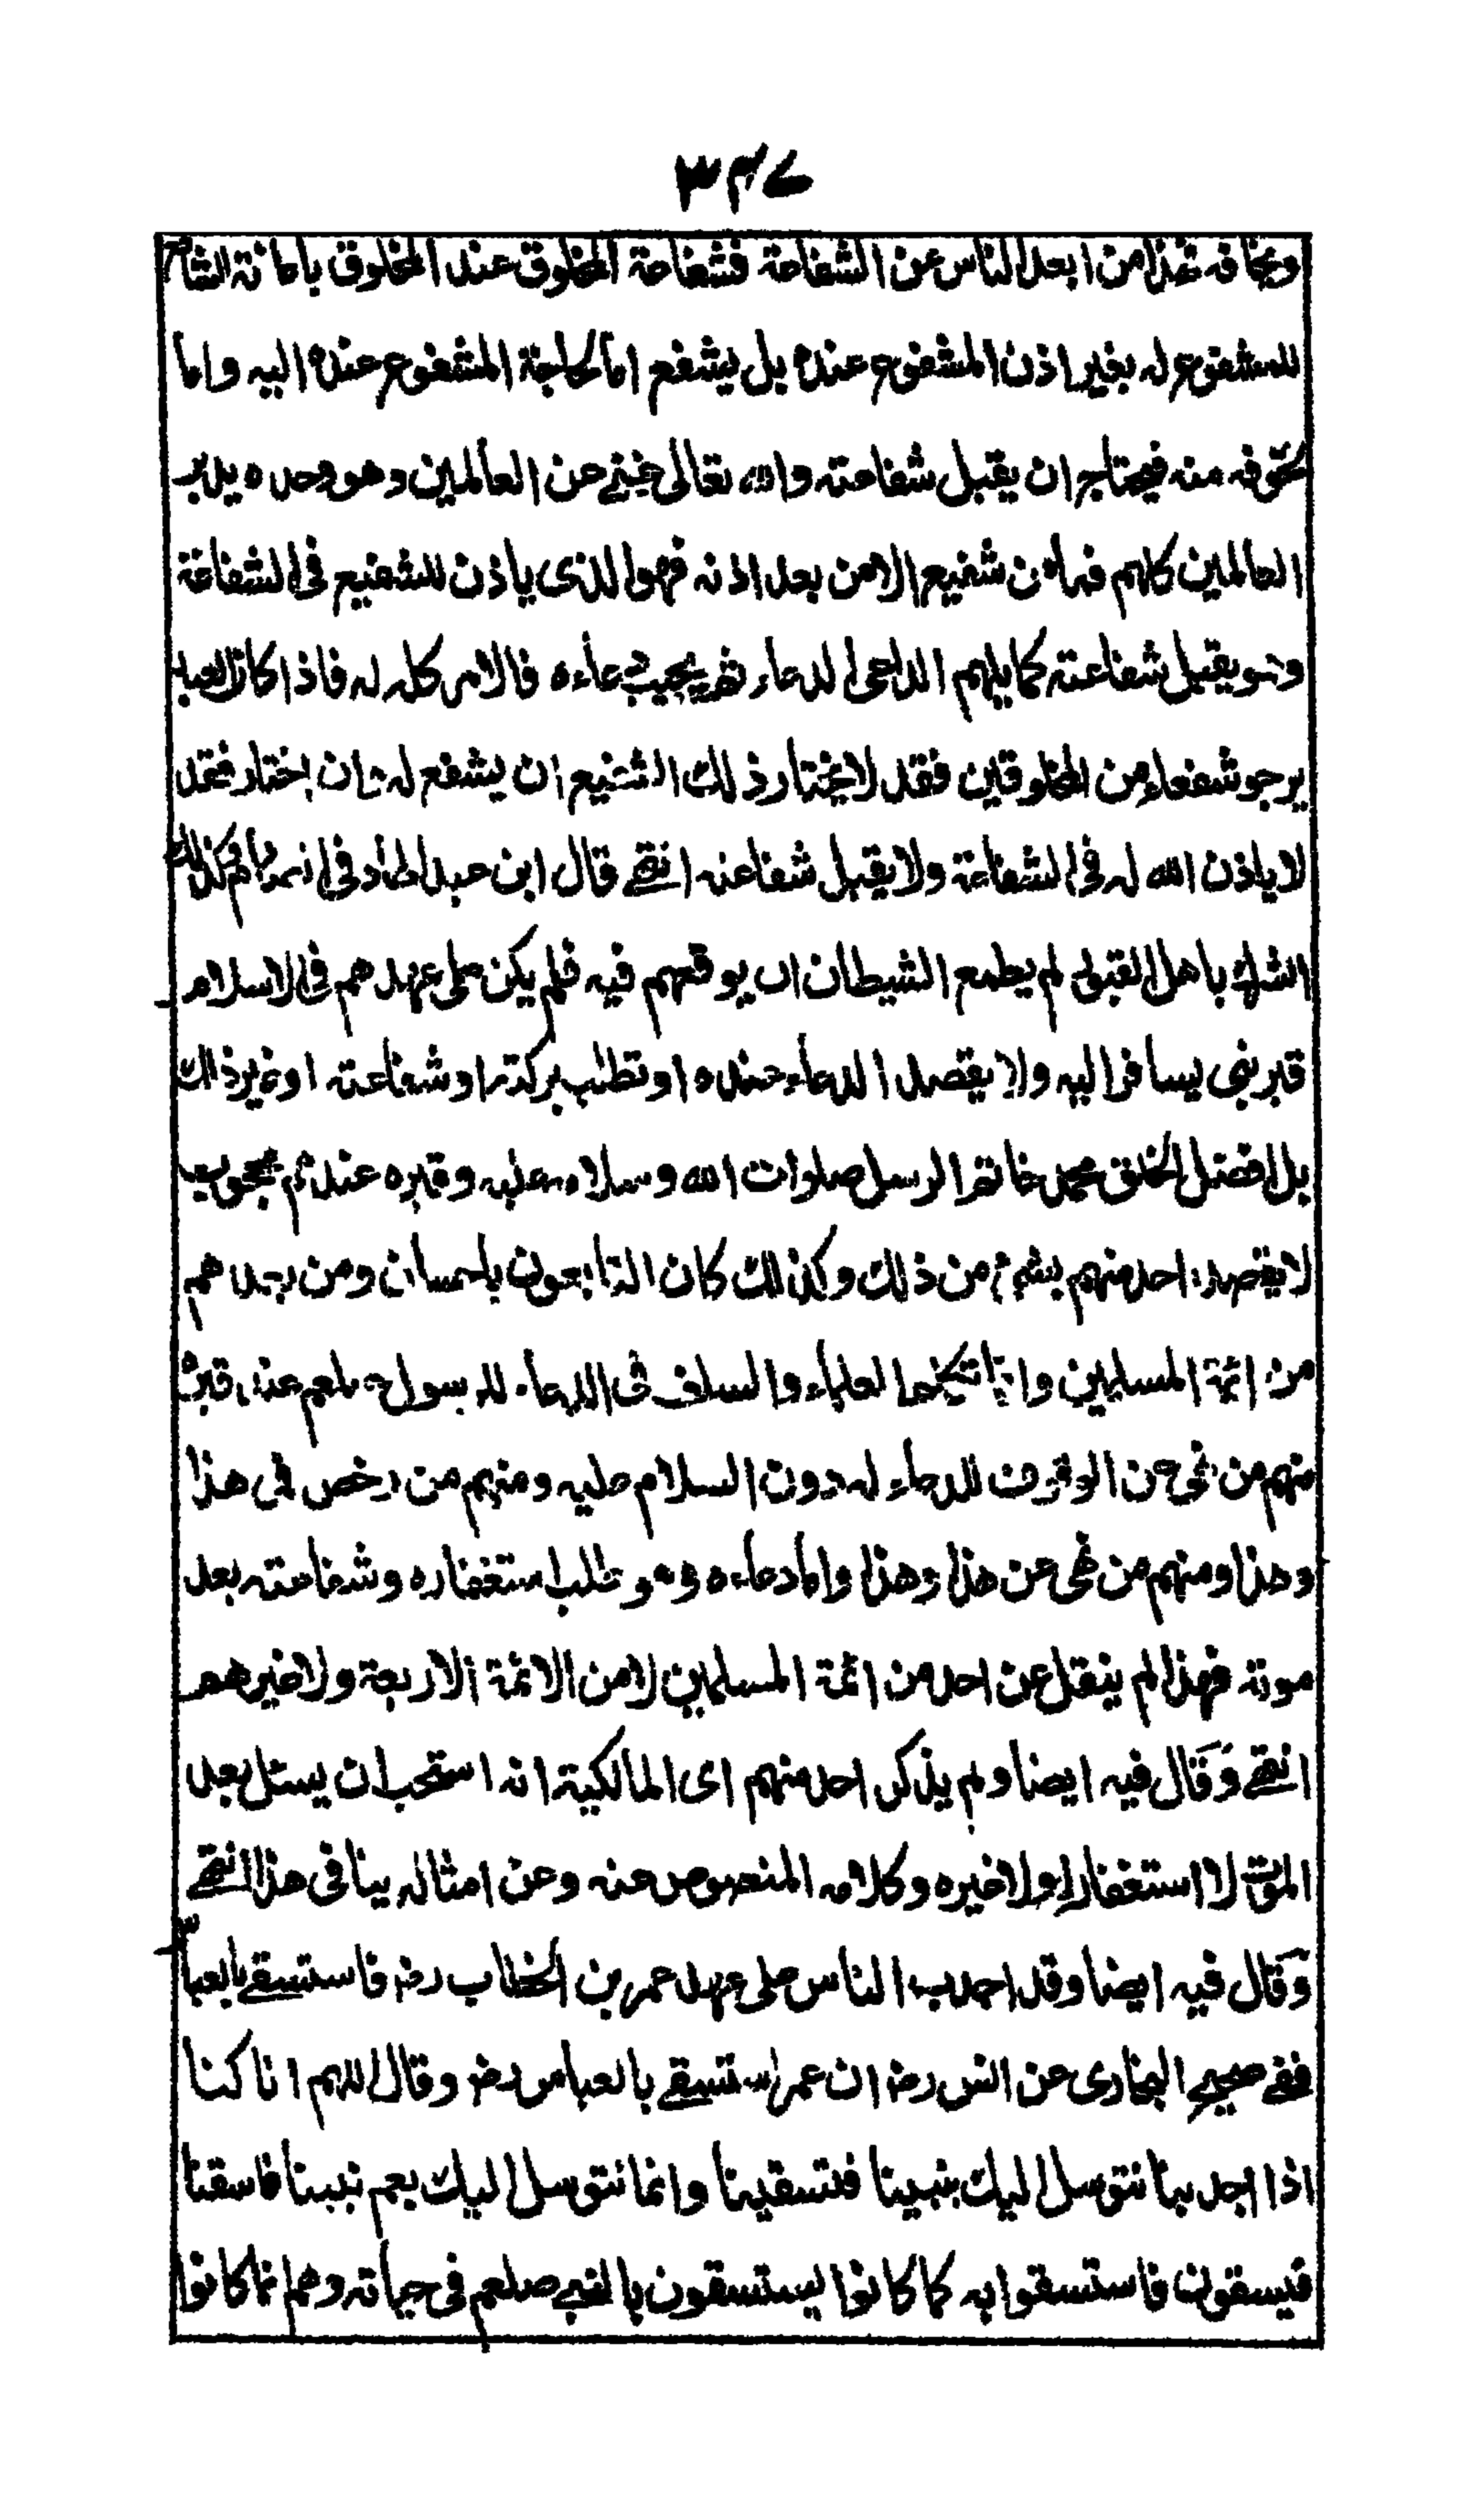 ٣٤٧
ويخافه فهذا من ابعد الناس عن الشفاعة فشفاعة المخلوق عند المخلوق باعانة الشافع
للمشفوع له بغير اذن المشفوع عنده بل يشفع اما لحاجة المشفوع عنده اليه واما
لخوفه منه فيحتاج ان يقبل شفاعته والله تعالى غني عن العالمين وهو وحده يدبر
العالمين كلهم فما من شفيع الا من بعد اذنه فهو الذى ياذن للشفيع فى الشفاعة
وهو يقبل شفاعته كما يلهم الداعى الدعاء ثم يجيب دعاءه فالامر كله له فاذا كان العبد
يرجو شفعاء من المخلوقين فقد لا يختار ذلك الشفيع ان يشفع له وان اختار فقد
لا ياذن الله له فى الشفاعة ولا يقبل شفاعته انتهى قال ابن عبد الهاد فى وكذلك
الشرك باهل القبور لم يطمع الشيطان ان يوقعهم فيه فلم يكن على عهدهم فى الاسلام
قبر نبى يسافر اليه ولا يقصد الدعاء عنده او تطلب بركته او شفاعته او غير ذلك
بل افضل الخلق محمد خاتم الرسل صلوات الله وسلامه عليه وقبره عندهم محجوب
لا يقصده احد منهم بشئ من ذلك وكذلك كان التابعون باحسان ومن بعدهم
من ائمة المسلمين وانما تكلم العلماء والسلف فى الدعاء للرسول صلعم عند قبره
منهم من نهى عن الوقوف للدعاء له دون السلام عليه ومنهم من رخص فى هذا
وهذا ومنهم من نهى عن هذا وهذا واما دعاءه وهو طلب استغفاره وشفاعته بعد
موته فهذا لم ينقل عن احد من ائمة المسلمين لا من الائمة الاربعة ولا غيرهم
انتهى وقال فيه ايضا ولم يذكر احد منهم اى المالكية انه استحب ان يسئل بعد
الموت لا استغفارا ولا غيره وكلامه المنصوص عنه وعن امثاله ينافى هذا انتهى
وقال فيه ايضا وقد اجدب الناس على عهد عمر بن الخطاب رضـ فاستسقى بالعباس
ففى صحيح البخارى عن انس رضـ ان عمر استسقى بالعباس رضـ وقال اللهم انا كنا
اذا اجدبنا نتوسل اليك بنبينا فتسقينا وانا نتوسل اليك بعم نبينا فاسقنا
فيسقون فاستسقوا به كما كانوا يستسقون بالنبى صلعم فى حياته وهم انما كانوا